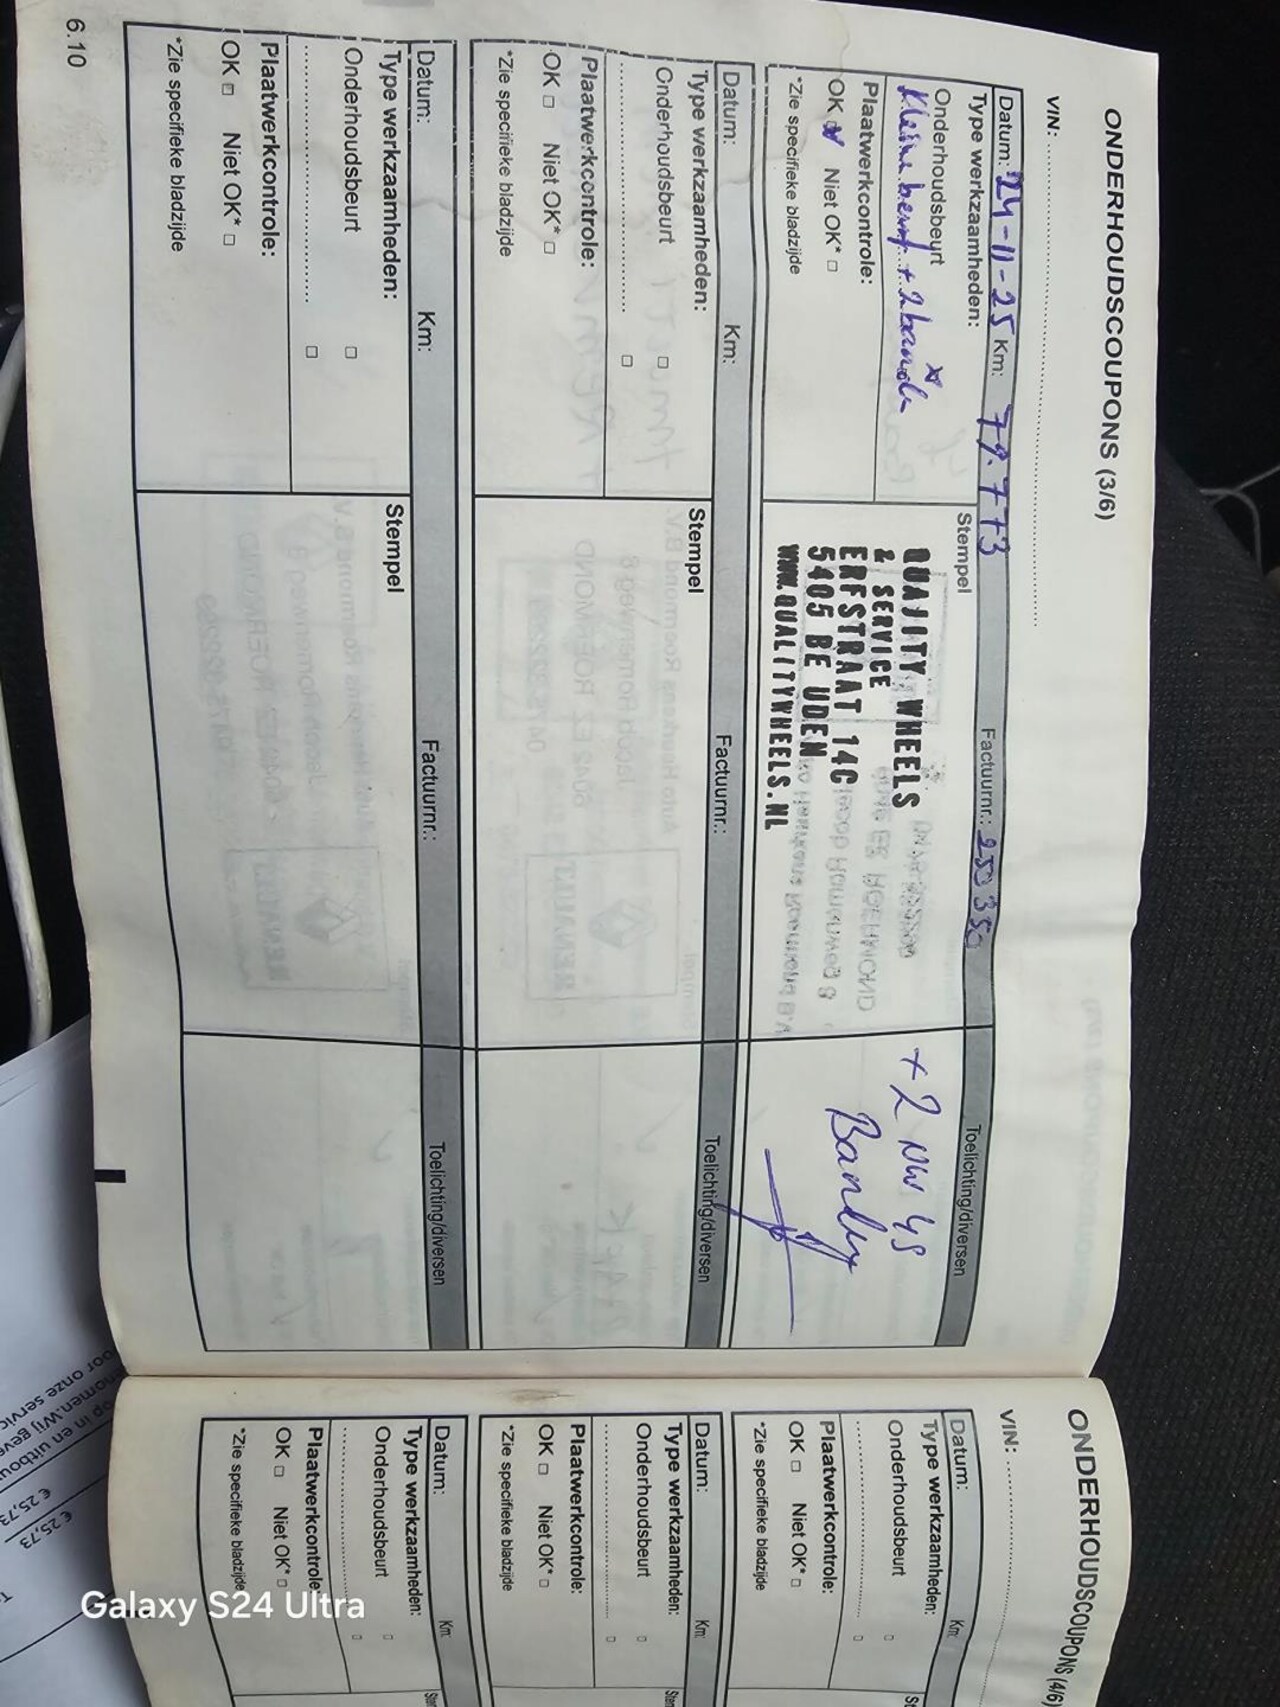 ONDERHOUDSCOUPONS (3/6)
VIN:
Datum: 24-11-25 Km: 79.773 Factuurnr.: 250350 Toelichting/diversen
Type werkzaamheden:
Onderhoudsbeurt
Kleine beurt + 2 banden
Plaatwerkcontrole:
OK Niet OK*
*Zie specifieke bladzijde
Stempel
QUALITY WHEELS
& SERVICE
ERFSTRAAT 14C
5405 BE UDEN
WWW.QUALITYWHEELS.NL
+ 2 NW 4S
Banden
Datum: Km: Factuurnr.: Toelichting/diversen
Type werkzaamheden:
Onderhoudsbeurt
Plaatwerkcontrole:
OK Niet OK*
*Zie specifieke bladzijde
Stempel
Datum: Km: Factuurnr.: Toelichting/diversen
Type werkzaamheden:
Onderhoudsbeurt
Plaatwerkcontrole:
OK Niet OK*
*Zie specifieke bladzijde
Stempel
6.10
ONDERHOUDSCOUPONS (4/6)
VIN:
Datum: Km:
Type werkzaamheden:
Onderhoudsbeurt
Plaatwerkcontrole:
OK Niet OK*
*Zie specifieke bladzijde
Datum: Km:
Type werkzaamheden:
Onderhoudsbeurt
Plaatwerkcontrole:
OK Niet OK*
*Zie specifieke bladzijde
Datum: Km:
Type werkzaamheden:
Onderhoudsbeurt
Plaatwerkcontrole:
OK Niet OK*
*Zie specifieke bladzijde
€ 25,73
€ 25,73
Galaxy S24 Ultra